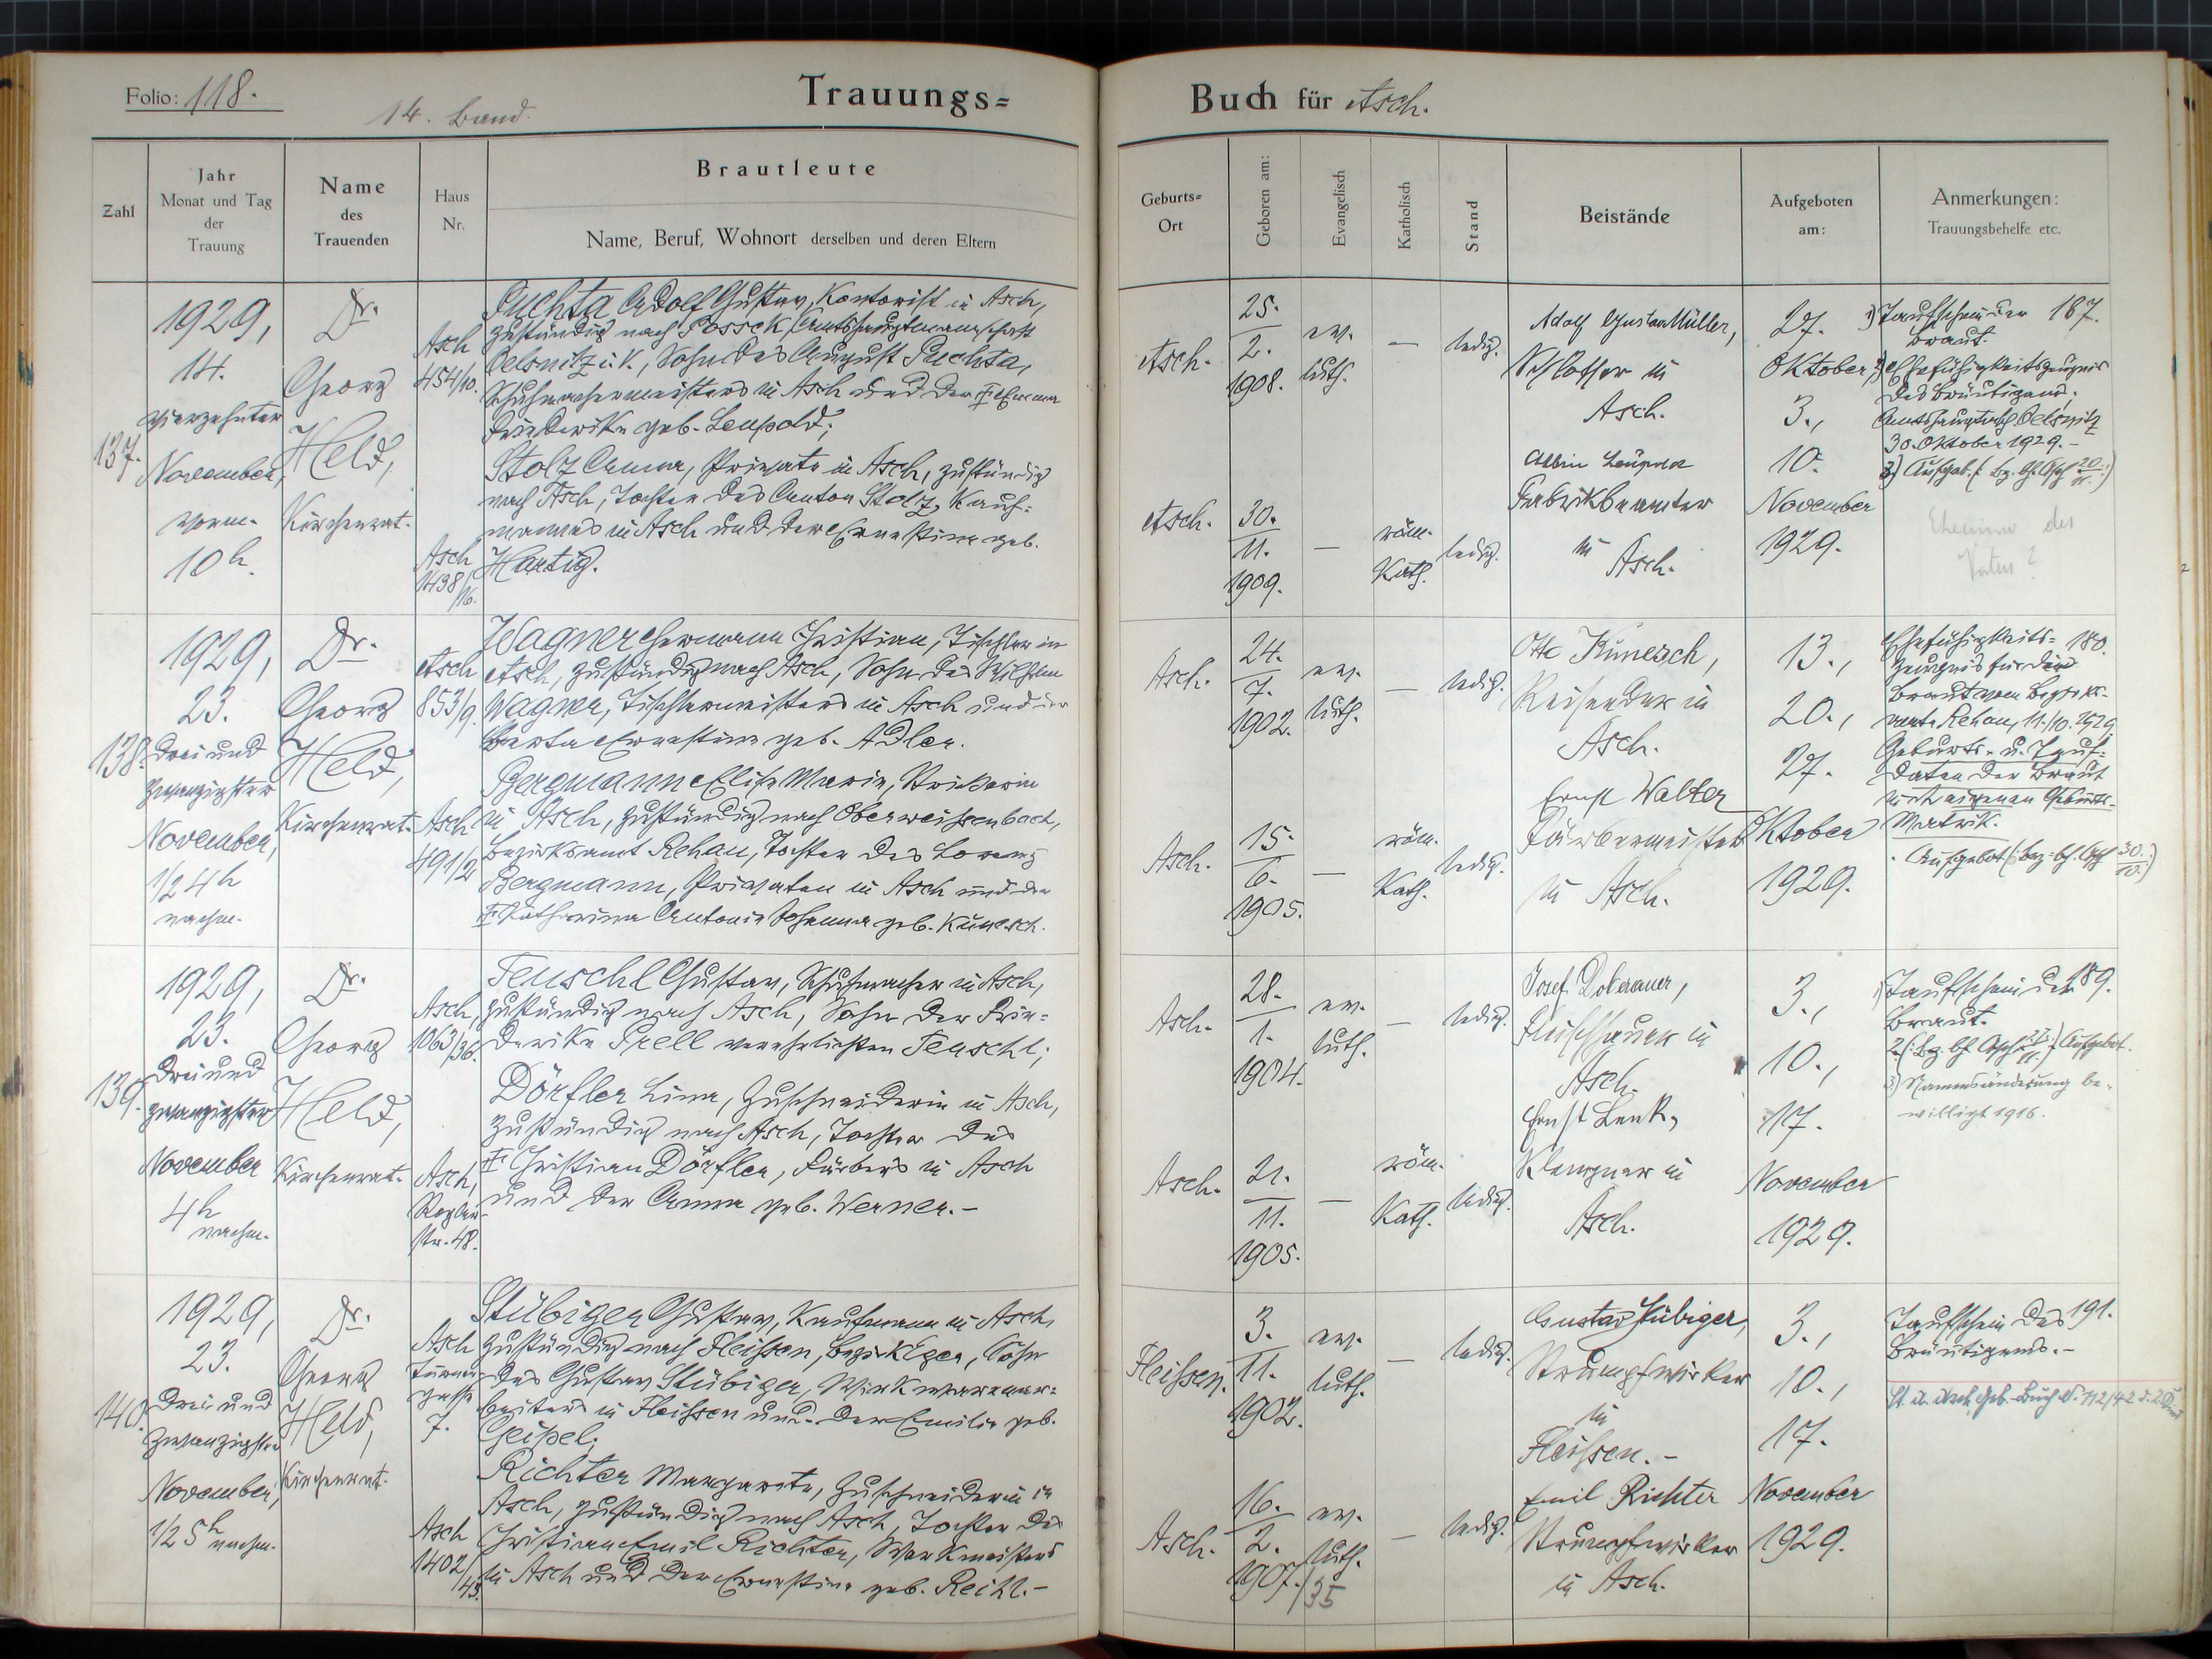 Folio: 118.
14. Band.
Trauungs=
Buch für Asch.
Zahl
Jahr
Monat und Tag
der
Trauung
Name
des
Trauenden
Haus
Nr.
Brautleute
Name, Beruf, Wohnort derselben und deren Eltern
Geburts=
Ort
Geboren am:
Evangelisch
Katholisch
Stand
Beistände
Aufgeboten
am:
Anmerkungen:
Trauungsbehelfe etc.
137.
1929,
14.
vierzehnter
November,
vorm.
10h.
Dr.
Georg
Held,
Kirchenrat.
Asch
454/10.
Asch
1438/
16.
Puchta Adolf Gustav, Kontorist in Asch,
zuständig nach Possek (Amtshauptmannschaft
Oelsnitz i. V., Sohn des August Puchta,
Schuhmachermeisters in Asch und der Emma
Friederike geb. Leupold;
Stolz Anna, Private in Asch, zuständig
nach Asch, Tochter des Anton Stolz, Kauf=
mannes in Asch und der Ernestine geb.
Hartig.
Asch.
25.
2.
1908.
ev.
luth.
—
ledig.
Asch.
30.
11.
1909.
—
röm.
kath.
ledig.
Adolf Gustav Müller,
Schlosser in
Asch.
Albin Leupold
Fabrikbeamter
in Asch.
27.
Oktober
3.,
10.
November
1929.
1) Taufschein der 187.
Braut.
2) Ehefähigkeitszeugnis
des Bräutigams,
Amtshauptmsch. Oelsnitz
30. Oktober 1929.-
3) Aufgeb. (: Bz. bh. Asch
des
Vaters?
138.
1929,
23.
drei und
zwanzigster
November,
1/2 4h
nachm.
Dr.
Georg
Held,
Kirchenrat.
Asch
853/9.
Asch
491/2
Wagner Hermann Christian, Tischler in
Asch, zuständig nach Asch, Sohn des Wilhelm
Wagner, Tischlermeisters in Asch und der
Berta Ernestine geb. Adler.
Bergmann Elise Marie, Strickerin
in Asch, zuständig nach Oberweissenbach,
Bezirksamt Rehau, Tochter des Lorenz
Bergmann, Privaten in Asch und der
Katharina Antonia Johanna geb. Künesch.
Asch.
24.
7.
1902.
ev.
luth.
—
ledig.
Asch.
15.
6.
1905.
—
röm.
Kath.
ledig.
Otto Künesch,
Reisender in
Asch.
Ernst Walter
Färbermeister
in Asch.
13.,
20.,
27.
Oktober
1929.
Ehefähigkeits= 180.
zeugnis für die
Braut vom Bezirks=
amte Rehau, 11./10. 1929.
Geburts- u. Tauf=
daten der Braut
in eigenen Geburts-
Matrik.
Aufgebot (: Bez. bh. Asch 30./10. :)
139.
1929,
23.
drei und
zwanzigster
November
4h
nachm.
Dr.
Georg
Held,
Kirchenrat.
Asch,
1063/36.
Asch,
Roglerstr. 48.
Teuschl Gustav, Schuhmacher in Asch,
zuständig nach Asch, Sohn der Frie=
derike Prell verehelichten Teuschl;
Dörfler Lina, Zuschneiderin in Asch,
zuständig nach Asch, Tochter des
Christian Dörfler, Färbers in Asch
und der Anna geb. Werner.-
Asch.
28.
1.
1904.
ev.
luth.
—
ledig.
Asch.
21.
11.
1905.
—
röm.
Kath.
ledig.
Josef Doberauer,
Fleischhauer in
Asch.
Ernst Lenk,
Klempner in
Asch.
3.,
10.,
17.
November
1929.
1) Taufschein der 189.
Braut.
2. (: Bz. bh. Asch Aufgebot.
3) Namensänderung be-
willigt 1916.
140.
1929,
23.
drei und
zwanzigster
November,
1/2 5h nachm.
Dr.
Georg
Held,
Kirchenrat.
Asch
Turner
gasse
7.
Asch
1402/
43.
Stübiger Gustav, Kaufmann in Asch,
zuständig nach Fleissen, Bezirk Eger, Sohn
des Gustav Stübiger, Wirkwarenar=
beiters in Fleissen und der Emilie geb.
Geipel;
Richter Margarete, Zuschneiderin in
Asch, zuständig nach Asch, Tochter des
Christian Emil Richter, Werkmeisters
in Asch und der Ernestine geb. Reihl.-
Fleissen.
3.
11.
1902.
ev.
luth.
—
ledig.
Asch.
16.
2.
1907.
ev.
luth.
/35
—
ledig.
Gustav Stübiger,
Strumpfwirker
in
Fleissen.-
Emil Richter
Strumpfwirker
in Asch.
3.,
10.,
17.
November
1929.
Taufschein des 191.
Bräutigams.-
St. A. Asch, Geb. Buch Nr. 112/42